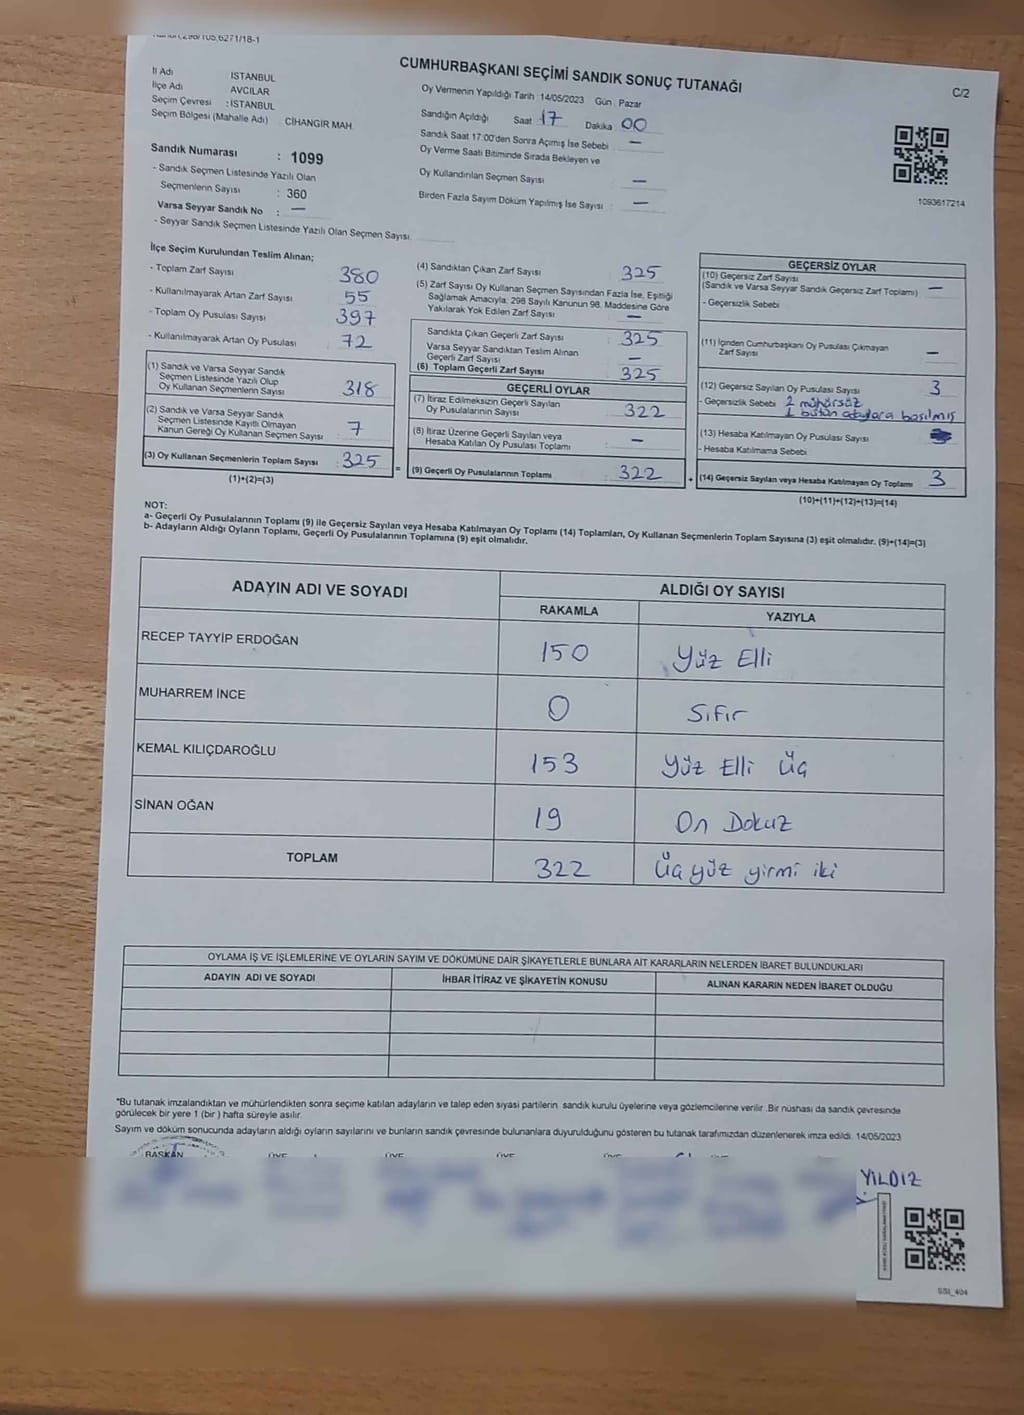 CUMHURBAŞKANI SEÇİMİ SANDIK SONUÇ TUTANAĞI
C/2
İl Adı İSTANBUL
İlçe Adı AVCILAR
Seçim Çevresi : İSTANBUL
Seçim Bölgesi (Mahalle Adı) CİHANGİR MAH.
Sandık Numarası : 1099
- Sandık Seçmen Listesinde Yazılı Olan
Seçmenlerin Sayısı : 360
Varsa Seyyar Sandık No : —
- Seyyar Sandık Seçmen Listesinde Yazılı Olan Seçmen Sayısı.
Oy Vermenin Yapıldığı Tarih : 14/05/2023 Gün : Pazar
Sandığın Açıldığı Saat : 17 Dakika : 00
Sandık Saat 17:00'den Sonra Açımış İse Sebebi —
Oy Verme Saati Bitiminde Sırada Bekleyen ve
Oy Kullandırılan Seçmen Sayısı —
Birden Fazla Sayım Döküm Yapılmış İse Sayısı : —
1093617214
İlçe Seçim Kurulundan Teslim Alınan;
- Toplam Zarf Sayısı 380
- Kullanılmayarak Artan Zarf Sayısı 55
- Toplam Oy Pusulası Sayısı 397
- Kullanılmayarak Artan Oy Pusulası 72
(1) Sandık ve Varsa Seyyar Sandık
Seçmen Listesinde Yazılı Olup
Oy Kullanan Seçmenlerin Sayısı 318
(2) Sandık ve Varsa Seyyar Sandık
Seçmen Listesinde Kayıtlı Olmayan
Kanun Gereği Oy Kullanan Seçmen Sayısı : 7
(3) Oy Kullanan Seçmenlerin Toplam Sayısı : 325
(1)+(2)=(3)
=
(4) Sandıktan Çıkan Zarf Sayısı 325
(5) Zarf Sayısı Oy Kullanan Seçmen Sayısından Fazla İse, Eşitliği
Sağlamak Amacıyla, 298 Sayılı Kanunun 98. Maddesine Göre
Yakılarak Yok Edilen Zarf Sayısı —
Sandıkta Çıkan Geçerli Zarf Sayısı 325
Varsa Seyyar Sandıktan Teslim Alınan
Geçerli Zarf Sayısı —
(6) Toplam Geçerli Zarf Sayısı 325
GEÇERLİ OYLAR
(7) İtiraz Edilmeksizin Geçerli Sayılan
Oy Pusulalarının Sayısı 322
(8) İtiraz Üzerine Geçerli Sayılan veya
Hesaba Katılan Oy Pusulası Toplamı —
(9) Geçerli Oy Pusulalarının Toplamı 322
+
GEÇERSİZ OYLAR
(10) Geçersiz Zarf Sayısı —
(Sandık ve Varsa Seyyar Sandık Geçersiz Zarf Toplamı)
- Geçersizlik Sebebi
(11) İçinden Cumhurbaşkanı Oy Pusulası Çıkmayan
Zarf Sayısı —
(12) Geçersiz Sayılan Oy Pusulası Sayısı 3
- Geçersizlik Sebebi 2 mühürsüz
1 bütün adaylara basılmış
(13) Hesaba Katılmayan Oy Pusulası Sayısı
- Hesaba Katılmama Sebebi
(14) Geçersiz Sayılan veya Hesaba Katılmayan Oy Toplamı 3
(10)+(11)+(12)+(13)=(14)
NOT:
a- Geçerli Oy Pusulalarının Toplamı (9) ile Geçersiz Sayılan veya Hesaba Katılmayan Oy Toplamı (14) Toplamları, Oy Kullanan Seçmenlerin Toplam Sayısına (3) eşit olmalıdır. (9)+(14)=(3)
b- Adayların Aldığı Oyların Toplamı, Geçerli Oy Pusulalarının Toplamına (9) eşit olmalıdır.
ADAYIN ADI VE SOYADI ALDIĞI OY SAYISI
RAKAMLA YAZIYLA
RECEP TAYYİP ERDOĞAN 150 Yüz Elli
MUHARREM İNCE 0 Sıfır
KEMAL KILIÇDAROĞLU 153 Yüz Elli Üç
SİNAN OĞAN 19 On Dokuz
TOPLAM 322 Üçyüz yirmi iki
OYLAMA İŞ VE İŞLEMLERİNE VE OYLARIN SAYIM VE DÖKÜMÜNE DAİR ŞİKAYETLERLE BUNLARA AİT KARARLARIN NELERDEN İBARET BULUNDUKLARI
ADAYIN ADI VE SOYADI İHBAR İTİRAZ VE ŞİKAYETİN KONUSU ALINAN KARARIN NEDEN İBARET OLDUĞU
*Bu tutanak imzalandıktan ve mühürlendikten sonra seçime katılan adayların ve talep eden siyasi partilerin sandık kurulu üyelerine veya gözlemcilerine verilir. Bir nüshası da sandık çevresinde
görülecek bir yere 1 (bir) hafta süreyle asılır.
Sayım ve döküm sonucunda adayların aldığı oyların sayılarını ve bunların sandık çevresinde bulunanlara duyurulduğunu gösteren bu tutanak tarafımızdan düzenlenerek imza edildi. 14/05/2023
BAŞKAN
YILDIZ
SSI_404